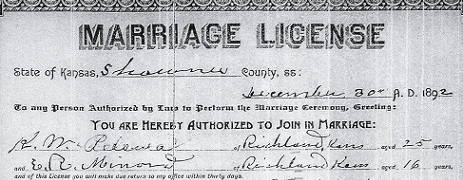 MARRIAGE LICENSE
State of Kansas, Shawnee County, ss:
December 30 A. D. 1892
To any Person Authorized by Law to Perform the Marriage Ceremony, Greeting:
YOU ARE HEREBY AUTHORIZED TO JOIN IN MARRIAGE:
W. of Richland, Kans aged 25 years,
and E. R. of Richland Kans aged 16 years,
and of this License you will make due return to my office within thirty days.